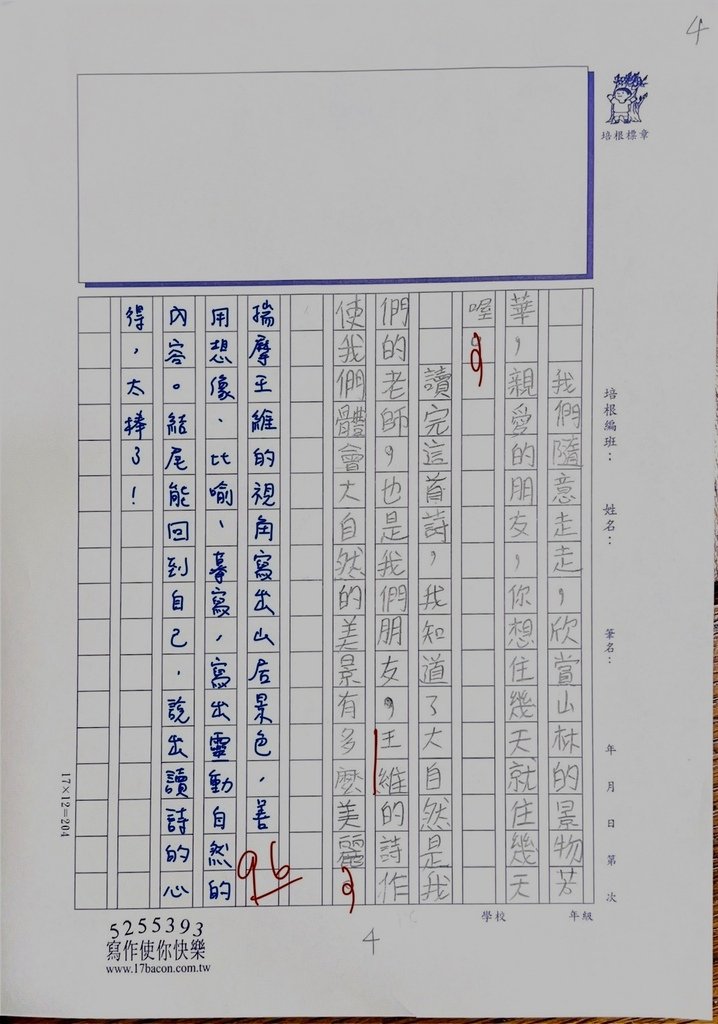 4
培根標章
培根編班： 姓名： 筆名： 年 月 日 第 次
學校 年級
我們隨意走走，欣賞山林的景物芳
華，親愛的朋友，你想住幾天就住幾天
喔
讀完這首詩，我知道了大自然是我
們的老師，也是我們朋友，王維的詩作
使我們體會大自然的美景有多麼美麗
揣摩王維的視角寫出山居景色，善
用想像、比喻、摹寫，寫出靈動自然的
內容。結尾能回到自己，說出讀詩的心
得，太棒了！
96
17×12=204
5255393
寫作使你快樂
www.17bacon.com.tw
4